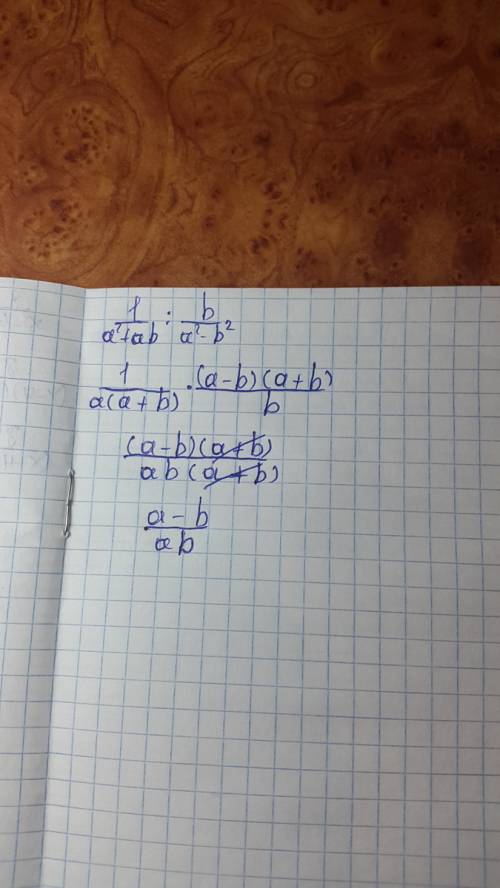 1/(a²+ab) : b/(a²-b²)
1/(a(a+b)) · ((a-b)(a+b))/b
((a-b)(a+b))/(ab(a+b))
(a-b)/(ab)